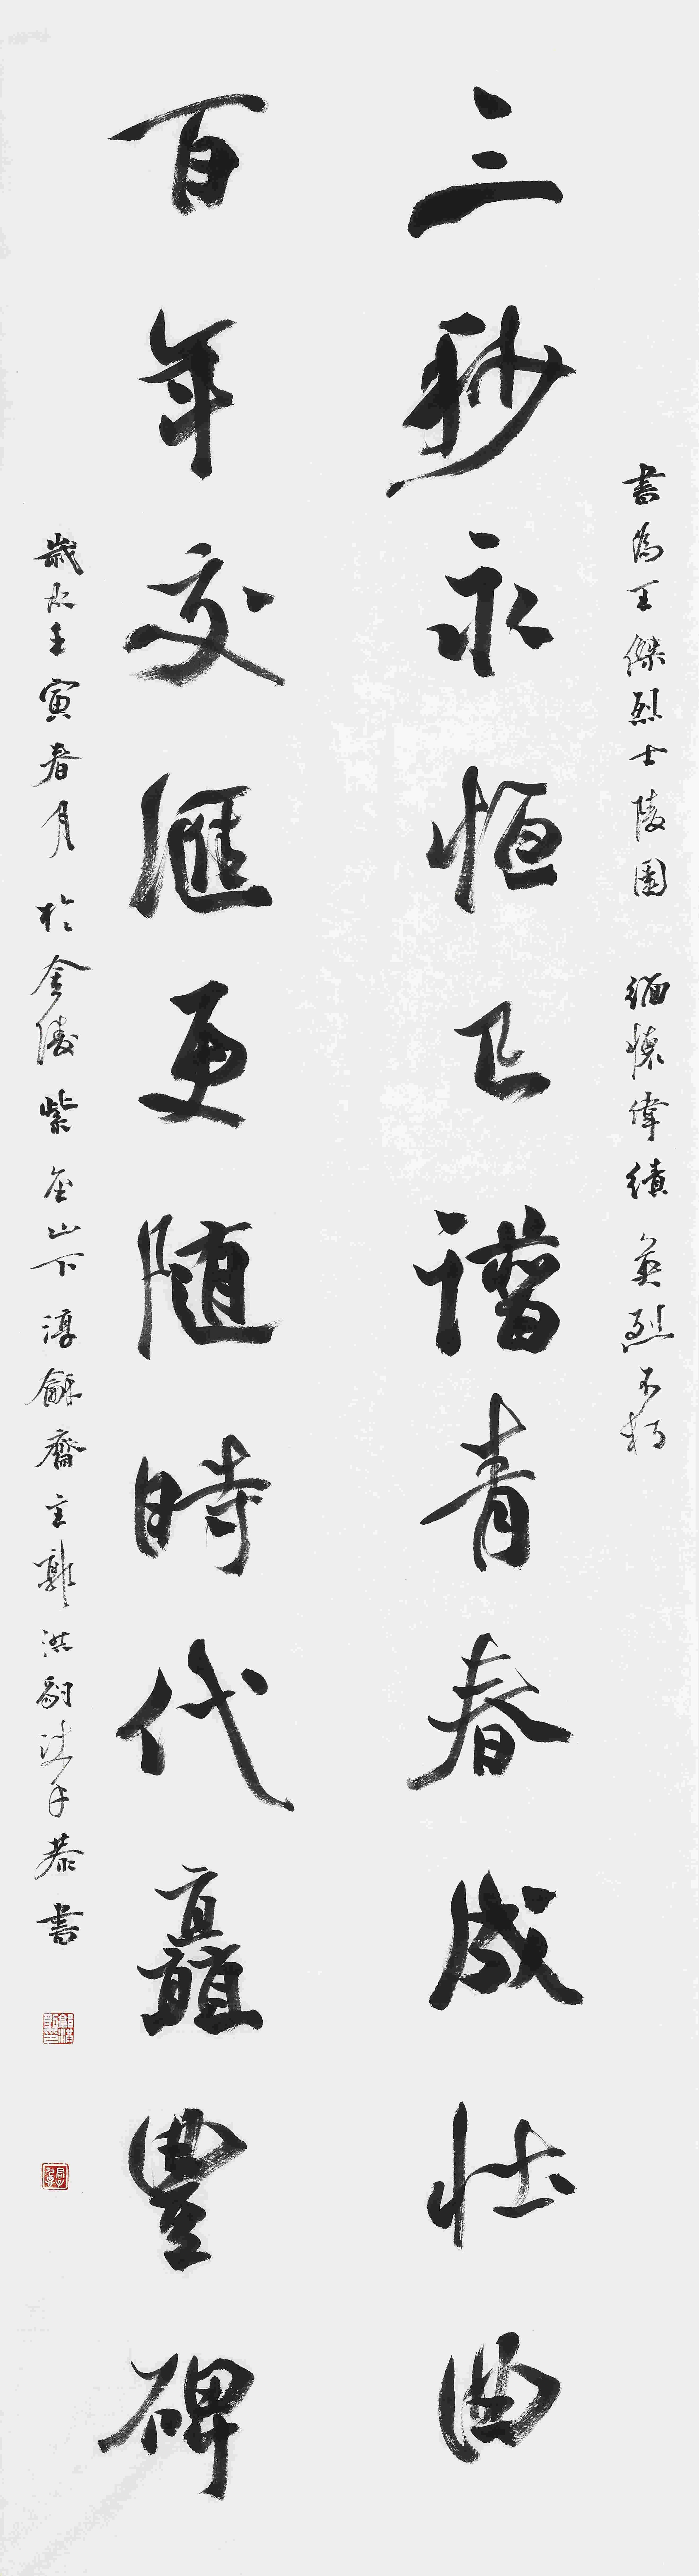 書為王傑烈士陵園 緬懷偉績 英烈不朽
三秒永恒已譜青春成壯曲
百年交匯更随時代矗豐碑
歲次壬寅春月於金陵紫金山下淳龢齋主洪豹沐手恭書